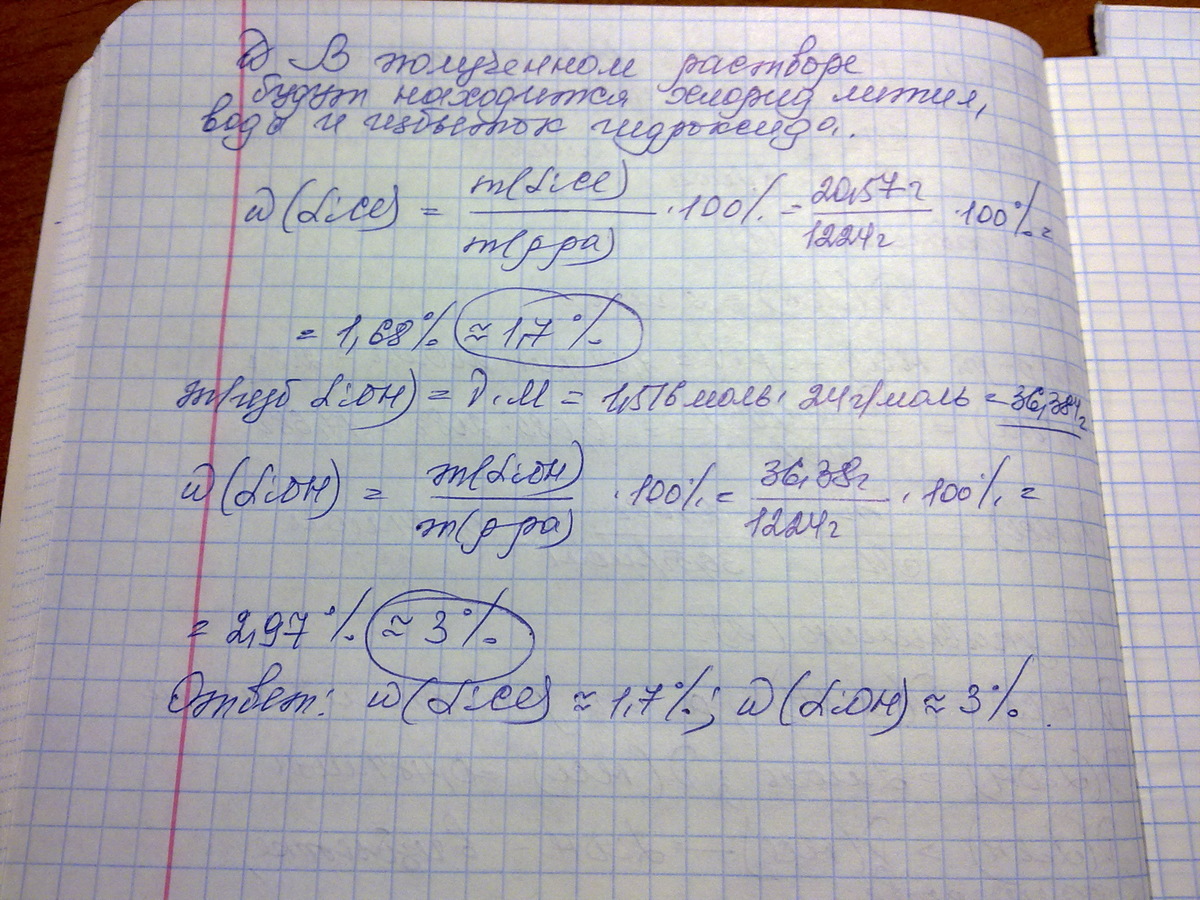 2) В полученном растворе
будут находится хлорид лития,
вода и избыток гидроксида.
w(LiCl) = m(LiCl) / m(р-ра) · 100% = 20,57г / 1224г · 100% =
= 1,68% ≈ 1,7%
m(изб LiOH) = ν·M = 1,516 моль · 24 г/моль = 36,384г
w(LiOH) = m(LiOH) / m(р-ра) · 100% = 36,38г / 1224г · 100% =
= 2,97% ≈ 3%
Ответ: w(LiCl) ≈ 1,7%; w(LiOH) ≈ 3%.